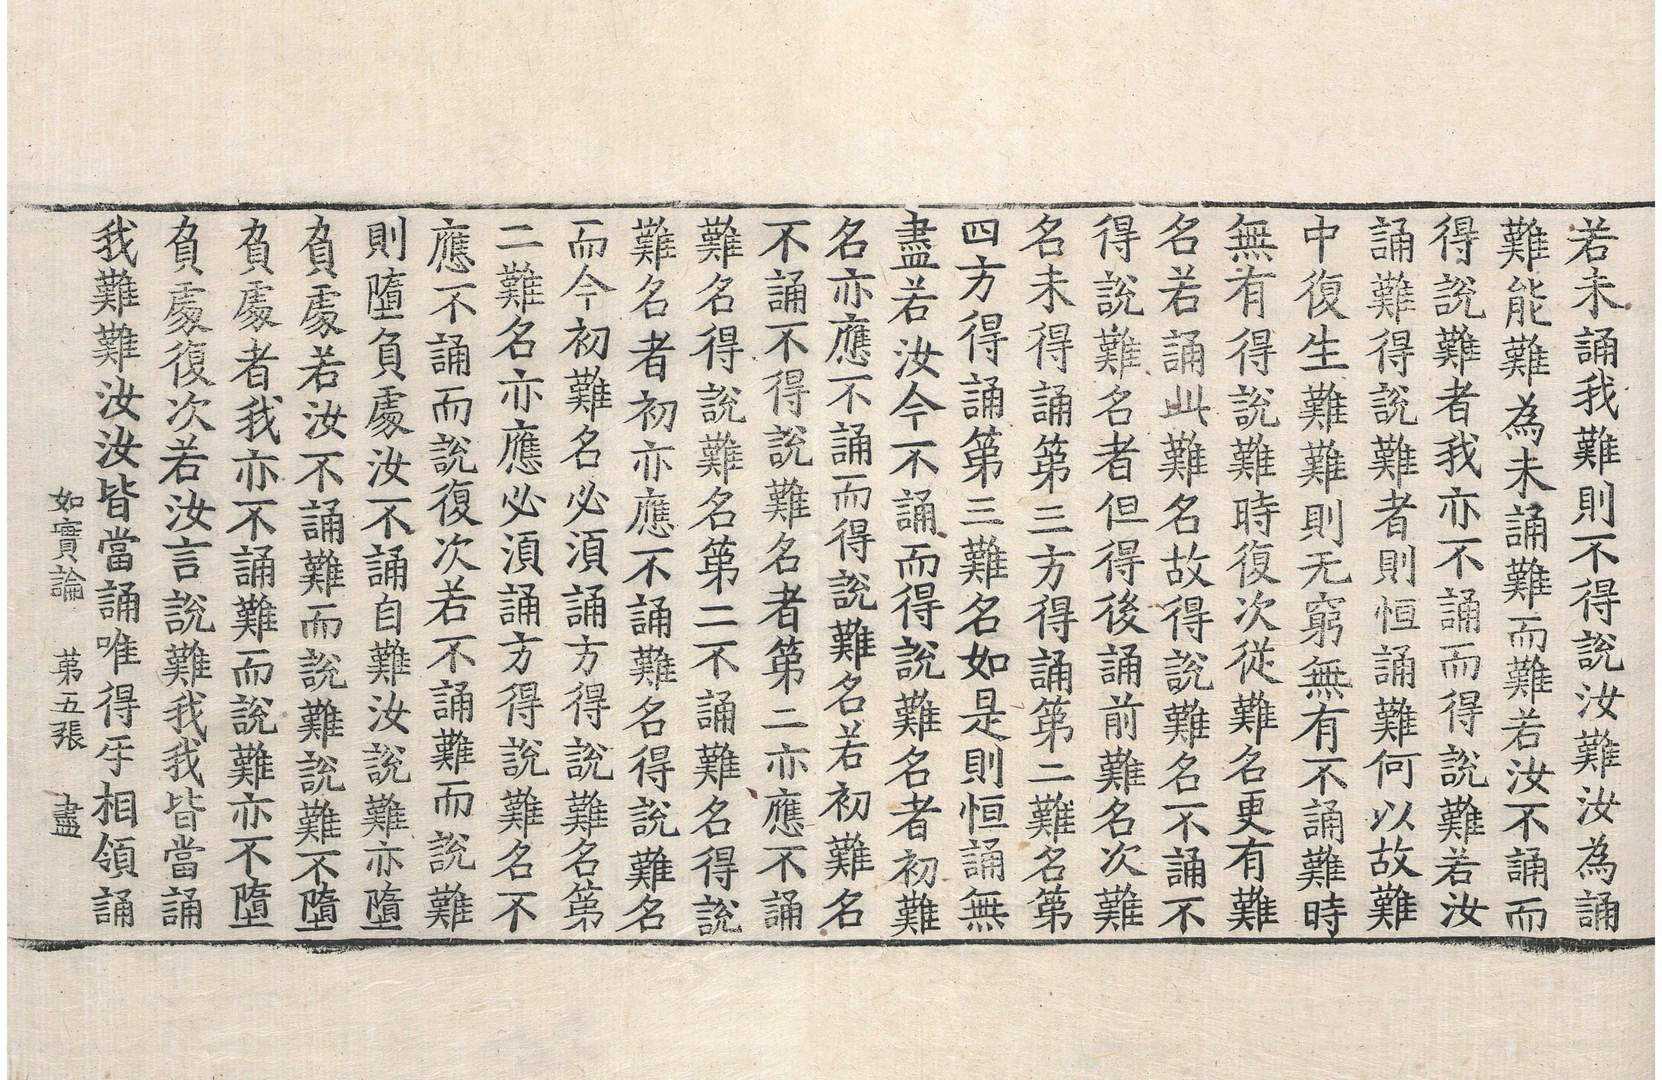 若未誦我難則不得說汝難汝為誦
難能難為未誦難而難若汝不誦而
得說難者我亦不誦而得說難若汝
誦難得說難者則恒誦難何以故難
中復生難難則无窮無有不誦難時
無有得說難時復次從難名更有難
名若誦此難名故得說難名不誦不
得說難名者但得後誦前難名次難
名未得誦第三方得誦第二難名第
四方得誦第三難名如是則恒誦無
盡若汝今不誦而得說難名者初難
名亦應不誦而得說難名若初難名
不誦不得說難名者第二亦應不誦
難名得說難名第二不誦難名得說
難名者初亦應不誦難名得說難名
而今初難名必須誦方得說難名第
二難名亦應必須誦方得說難名不
應不誦而說復次若不誦難而說難
則墮負處汝不誦自難汝說難亦墮
負處若汝不誦難而說難說難不墮
負處者我亦不誦難而說難亦不墮
負處復次若汝言說難我我皆當誦
我難難汝汝皆當誦唯得互相領誦
如實論 第五張 盡